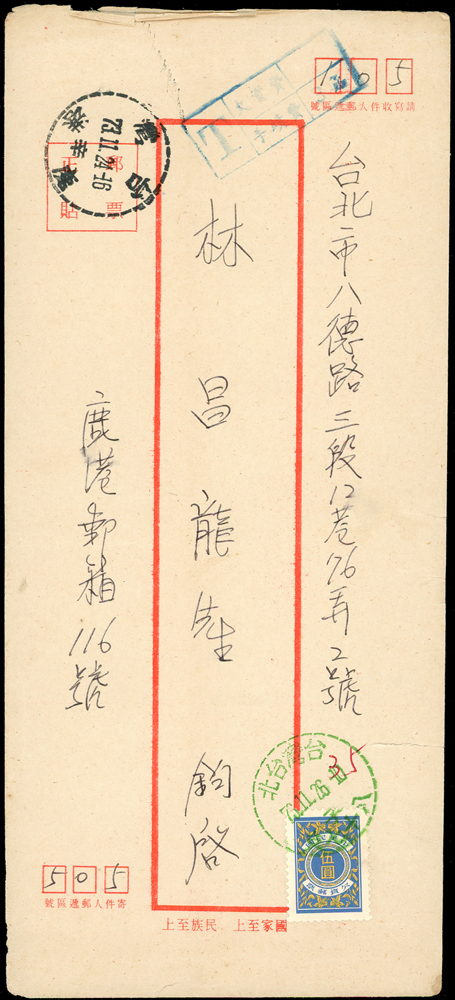 105
請寫收件人郵遞區號
台北市八德路三段12巷76弄2號
林昌龍先生 鈞啓
鹿港郵箱116號
正 郵
貼 票
73.11.24.16
T
欠資
35
台灣台北
伍圓
505
寄件人郵遞區號
國家至上 民族至上